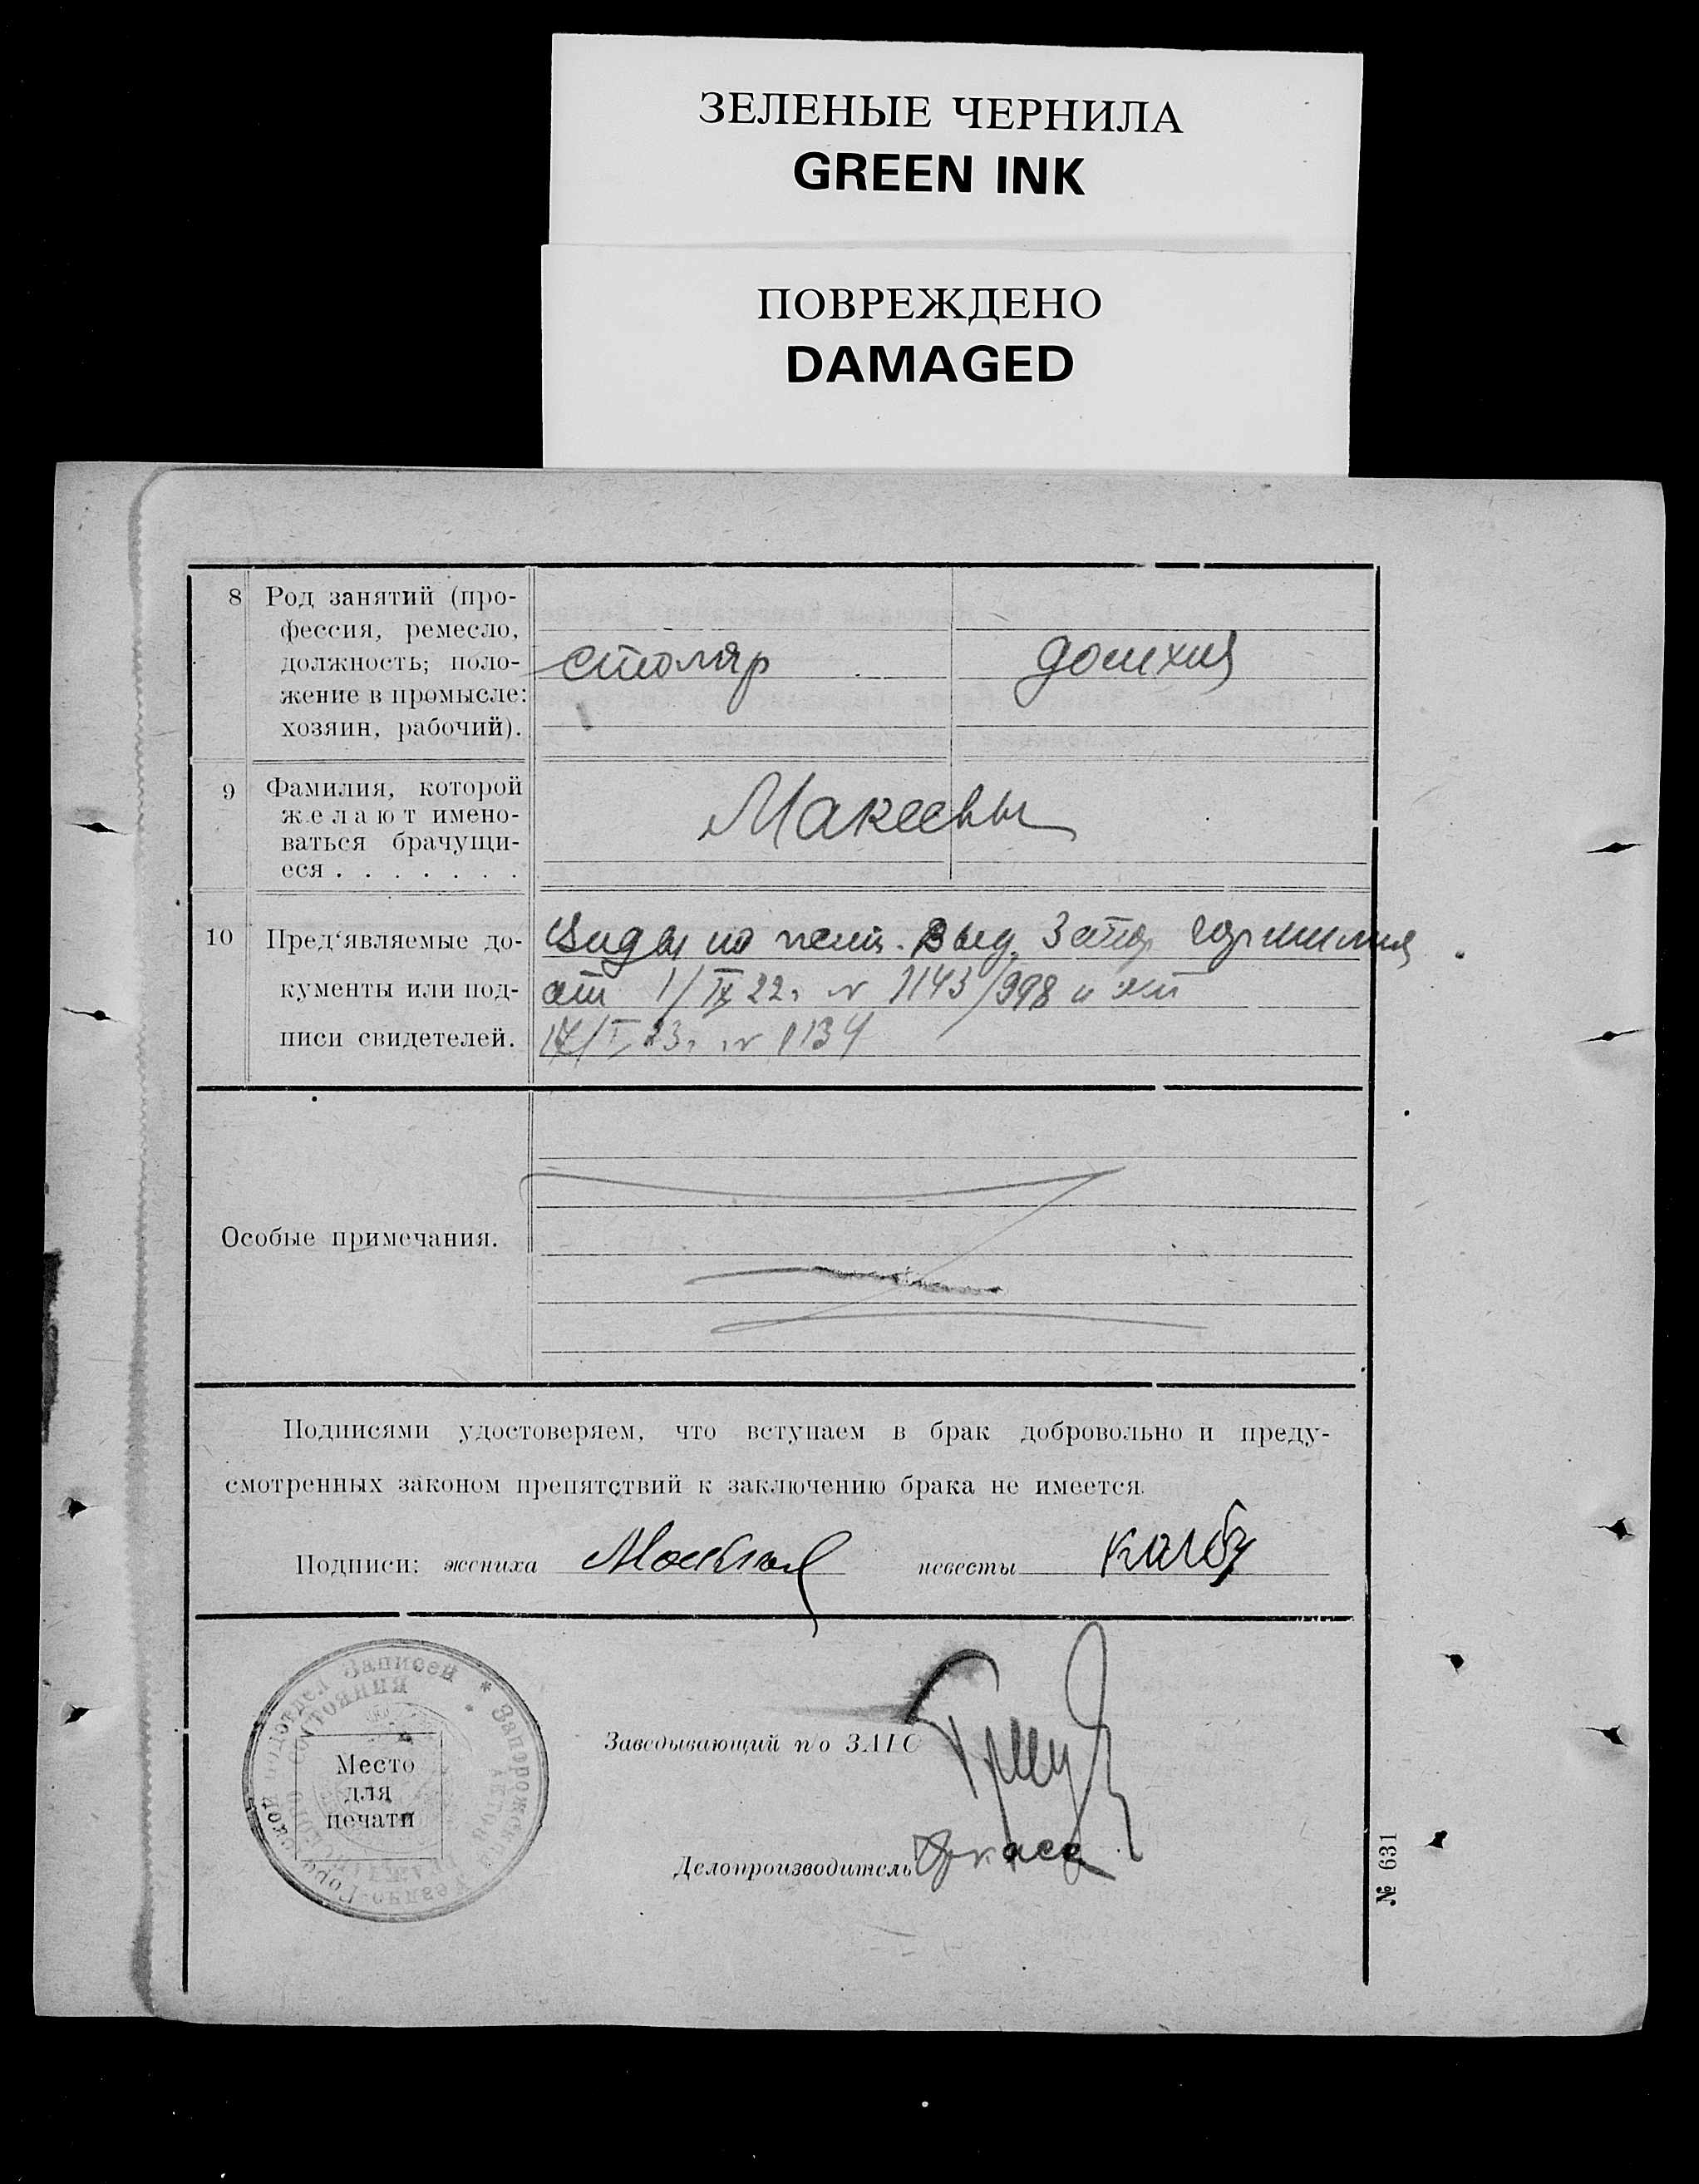 ЗЕЛЕНЫЕ ЧЕРНИЛА
GREEN INK
ПОВРЕЖДЕНО
DAMAGED
8 Род занятий (про-
фессия, ремесло,
должность; поло-
жение в промысле:
хозяин, рабочий).
столяр
домхоз
9 Фамилия, которой
желают имено-
ваться брачущи-
еся . . . . . . .
Макеевы
10 Пред‘являемые до-
кументы или под-
писи свидетелей.
Виды на жит. Выд. Запор. гормилиция
от 1/IX 22. № 1143/998 и
17/I 23. № 1134
Особые примечания.
Подписями удостоверяем, что вступаем в брак добровольно и преду-
смотренных законом препятствий к заключению брака не имеется.
Подписи: жениха невесты
Записей * Запорожский
подотдел
состояния
актов
Место
для
печати
Заведывающий п/о ЗАГС
Делопроизводитель
№ 631